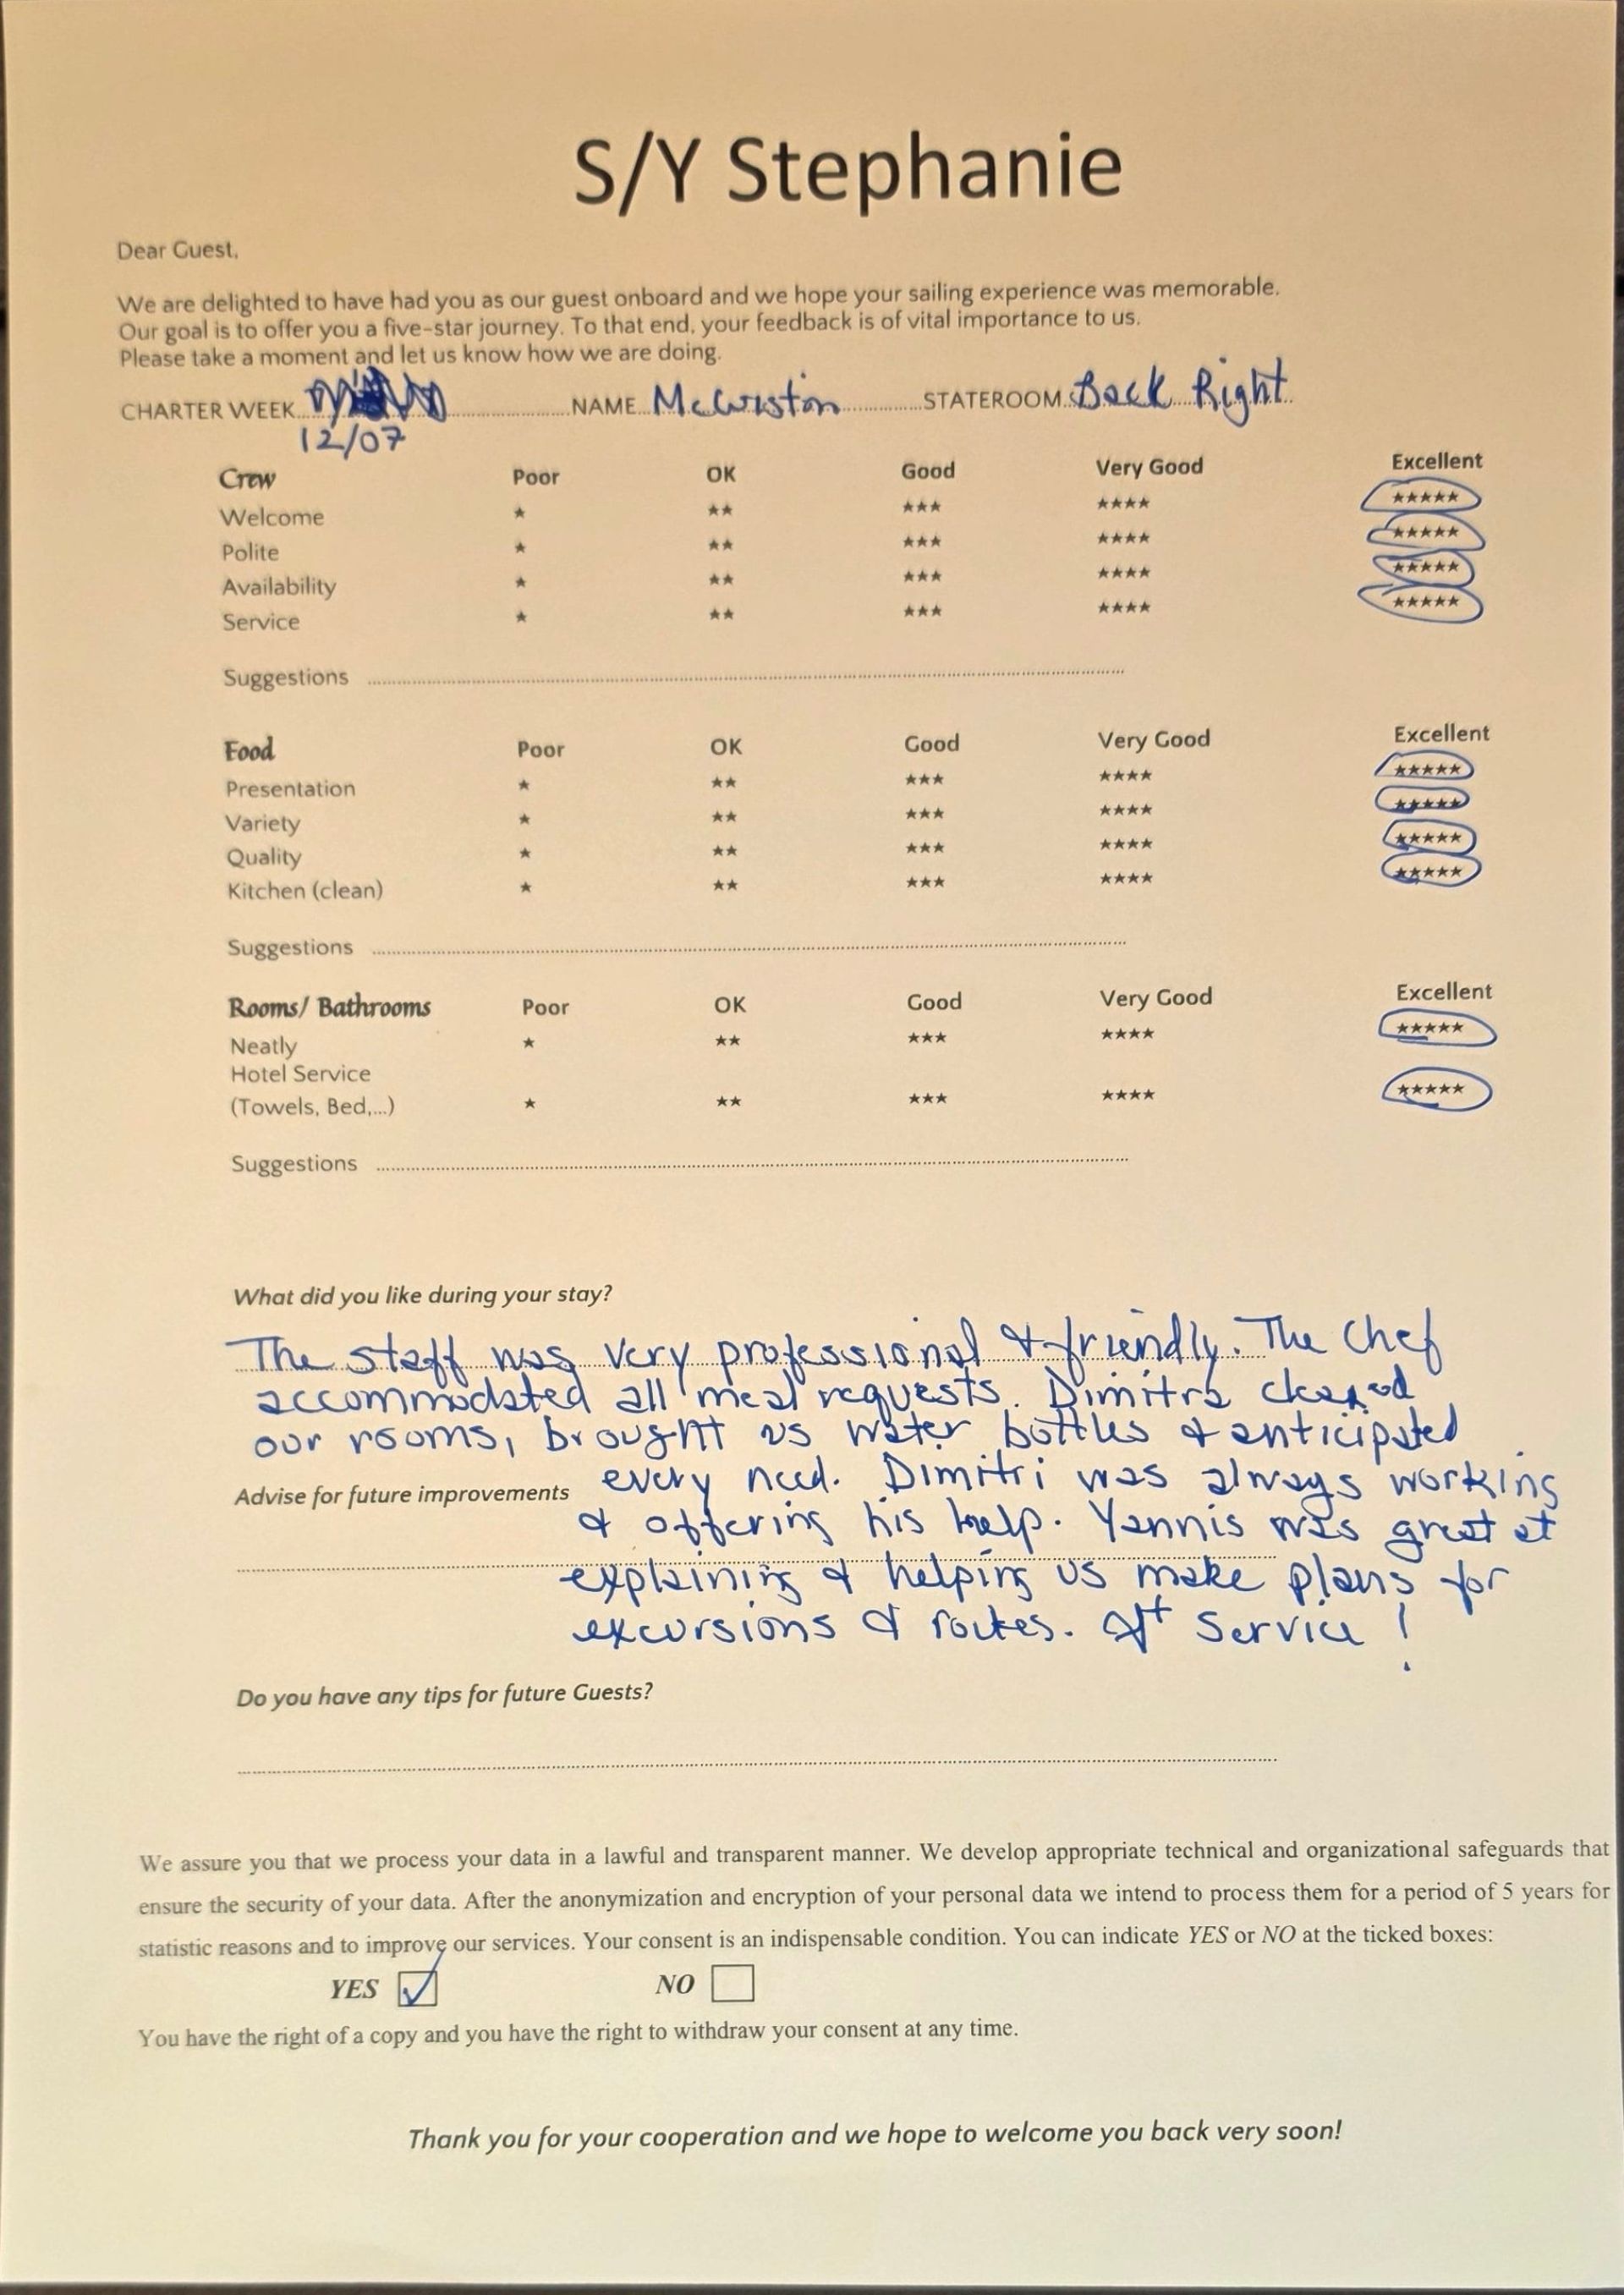 S/Y Stephanie
Dear Guest,
We are delighted to have had you as our guest onboard and we hope your sailing experience was memorable.
Our goal is to offer you a five-star journey. To that end, your feedback is of vital importance to us.
Please take a moment and let us know how we are doing.
CHARTER WEEK NAME STATEROOM Back Right
12/07
Crew Poor OK Good Very Good Excellent
Welcome ★ ★★ ★★★ ★★★★ ★★★★★
Polite ★ ★★ ★★★ ★★★★ ★★★★★
Availability ★ ★★ ★★★ ★★★★ ★★★★★
Service ★ ★★ ★★★ ★★★★ ★★★★★
Suggestions
Food Poor OK Good Very Good Excellent
Presentation ★ ★★ ★★★ ★★★★ ★★★★★
Variety ★ ★★ ★★★ ★★★★ ★★★★★
Quality ★ ★★ ★★★ ★★★★ ★★★★★
Kitchen (clean) ★ ★★ ★★★ ★★★★ ★★★★★
Suggestions
Rooms/ Bathrooms Poor OK Good Very Good Excellent
Neatly ★ ★★ ★★★ ★★★★ ★★★★★
Hotel Service
(Towels, Bed,...) ★ ★★ ★★★ ★★★★ ★★★★★
Suggestions
What did you like during your stay?
The staff was very professional & friendly. The Chef
accommodated all meal requests. Dimitra cleaned
our rooms, brought us water bottles & anticipated
every need. Dimitri was always working
Advise for future improvements
& offering his help. Yannis was great at
explaining & helping us make plans for
excursions & routes. A+ Service!
Do you have any tips for future Guests?
We assure you that we process your data in a lawful and transparent manner. We develop appropriate technical and organizational safeguards that
ensure the security of your data. After the anonymization and encryption of your personal data we intend to process them for a period of 5 years for
statistic reasons and to improve our services. Your consent is an indispensable condition. You can indicate YES or NO at the ticked boxes:
YES NO
You have the right of a copy and you have the right to withdraw your consent at any time.
Thank you for your cooperation and we hope to welcome you back very soon!